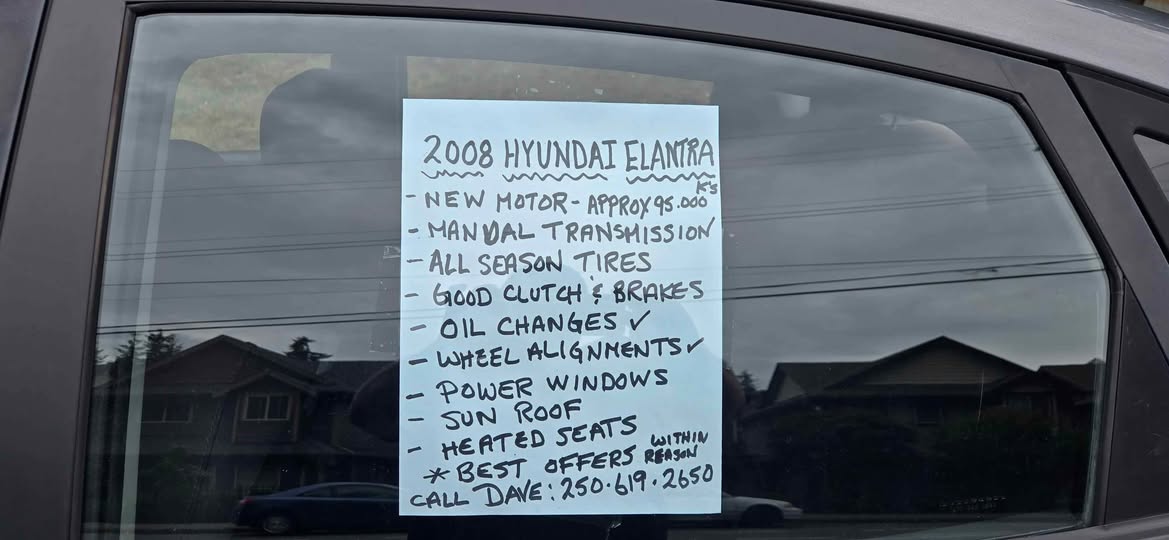 2008 HYUNDAI ELANTRA
- NEW MOTOR - APPROX 95.000 K's
- MANUAL TRANSMISSION
- ALL SEASON TIRES
- GOOD CLUTCH & BRAKES
- OIL CHANGES ✓
- WHEEL ALIGNMENTS ✓
- POWER WINDOWS
- SUN ROOF
- HEATED SEATS
* BEST OFFERS WITHIN REASON
CALL DAVE: 250.619.2650